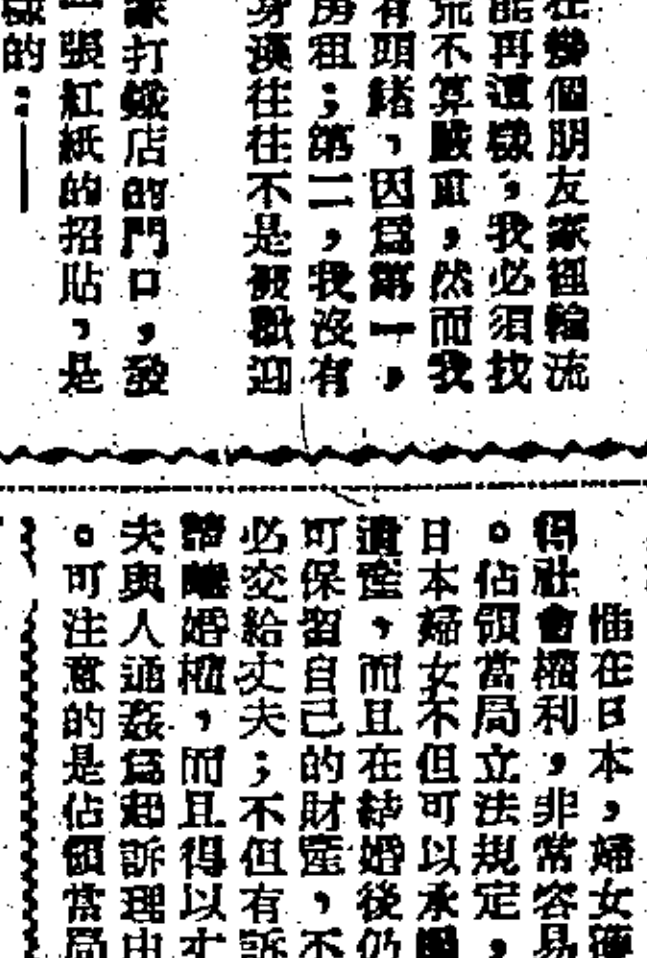 在幾個朋友家裡輪流
能再這樣，我必須找
荒不算嚴重，然而我
有頭緒，因爲第一，
房租；第二，我沒有
身漢往往不是被歡迎
家打蠟店的門口，發
張紅紙的招貼，是
樣的：——
惟在日本，婦女獲
得社會權利，非常容易
。佔領當局立法規定，
日本婦女不但可以承繼
遺產，而且在結婚後仍
可保留自己的財產，不
必交給丈夫；不但有訴
請離婚權，而且得以丈
夫與人通姦爲起訴理由
。可注意的是佔領當局